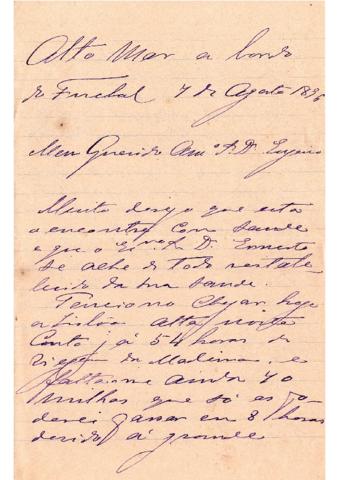 Alto Mar a bordo
do Funchal 7 de Agosto 1896
Meu Querido Amº Sr. D. Eugenio
Muito desejo que esta
o encontre com saude
e que o Exmo Sr. D. Ernesto
se ache de todo restabe-
lecido da sua saude.
Tenciono chegar hoje
a Lisboa alta noite
Conto já 54 horas de
viagem da Madeira, e
faltam-me ainda 70
milhas que só as po-
derei passar em 8 horas
devido á grande